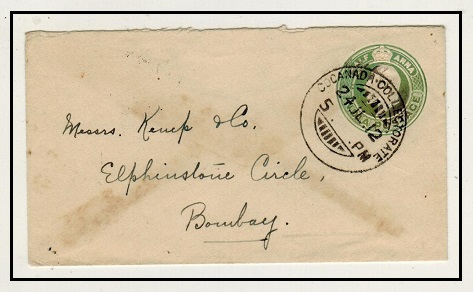 HALF ANNA
POSTAGE
COCANADA-COLLECTORATE
24 JLA 12
5 PM
Messrs. Kemp & Co.
Elphinstone Circle,
Bombay.